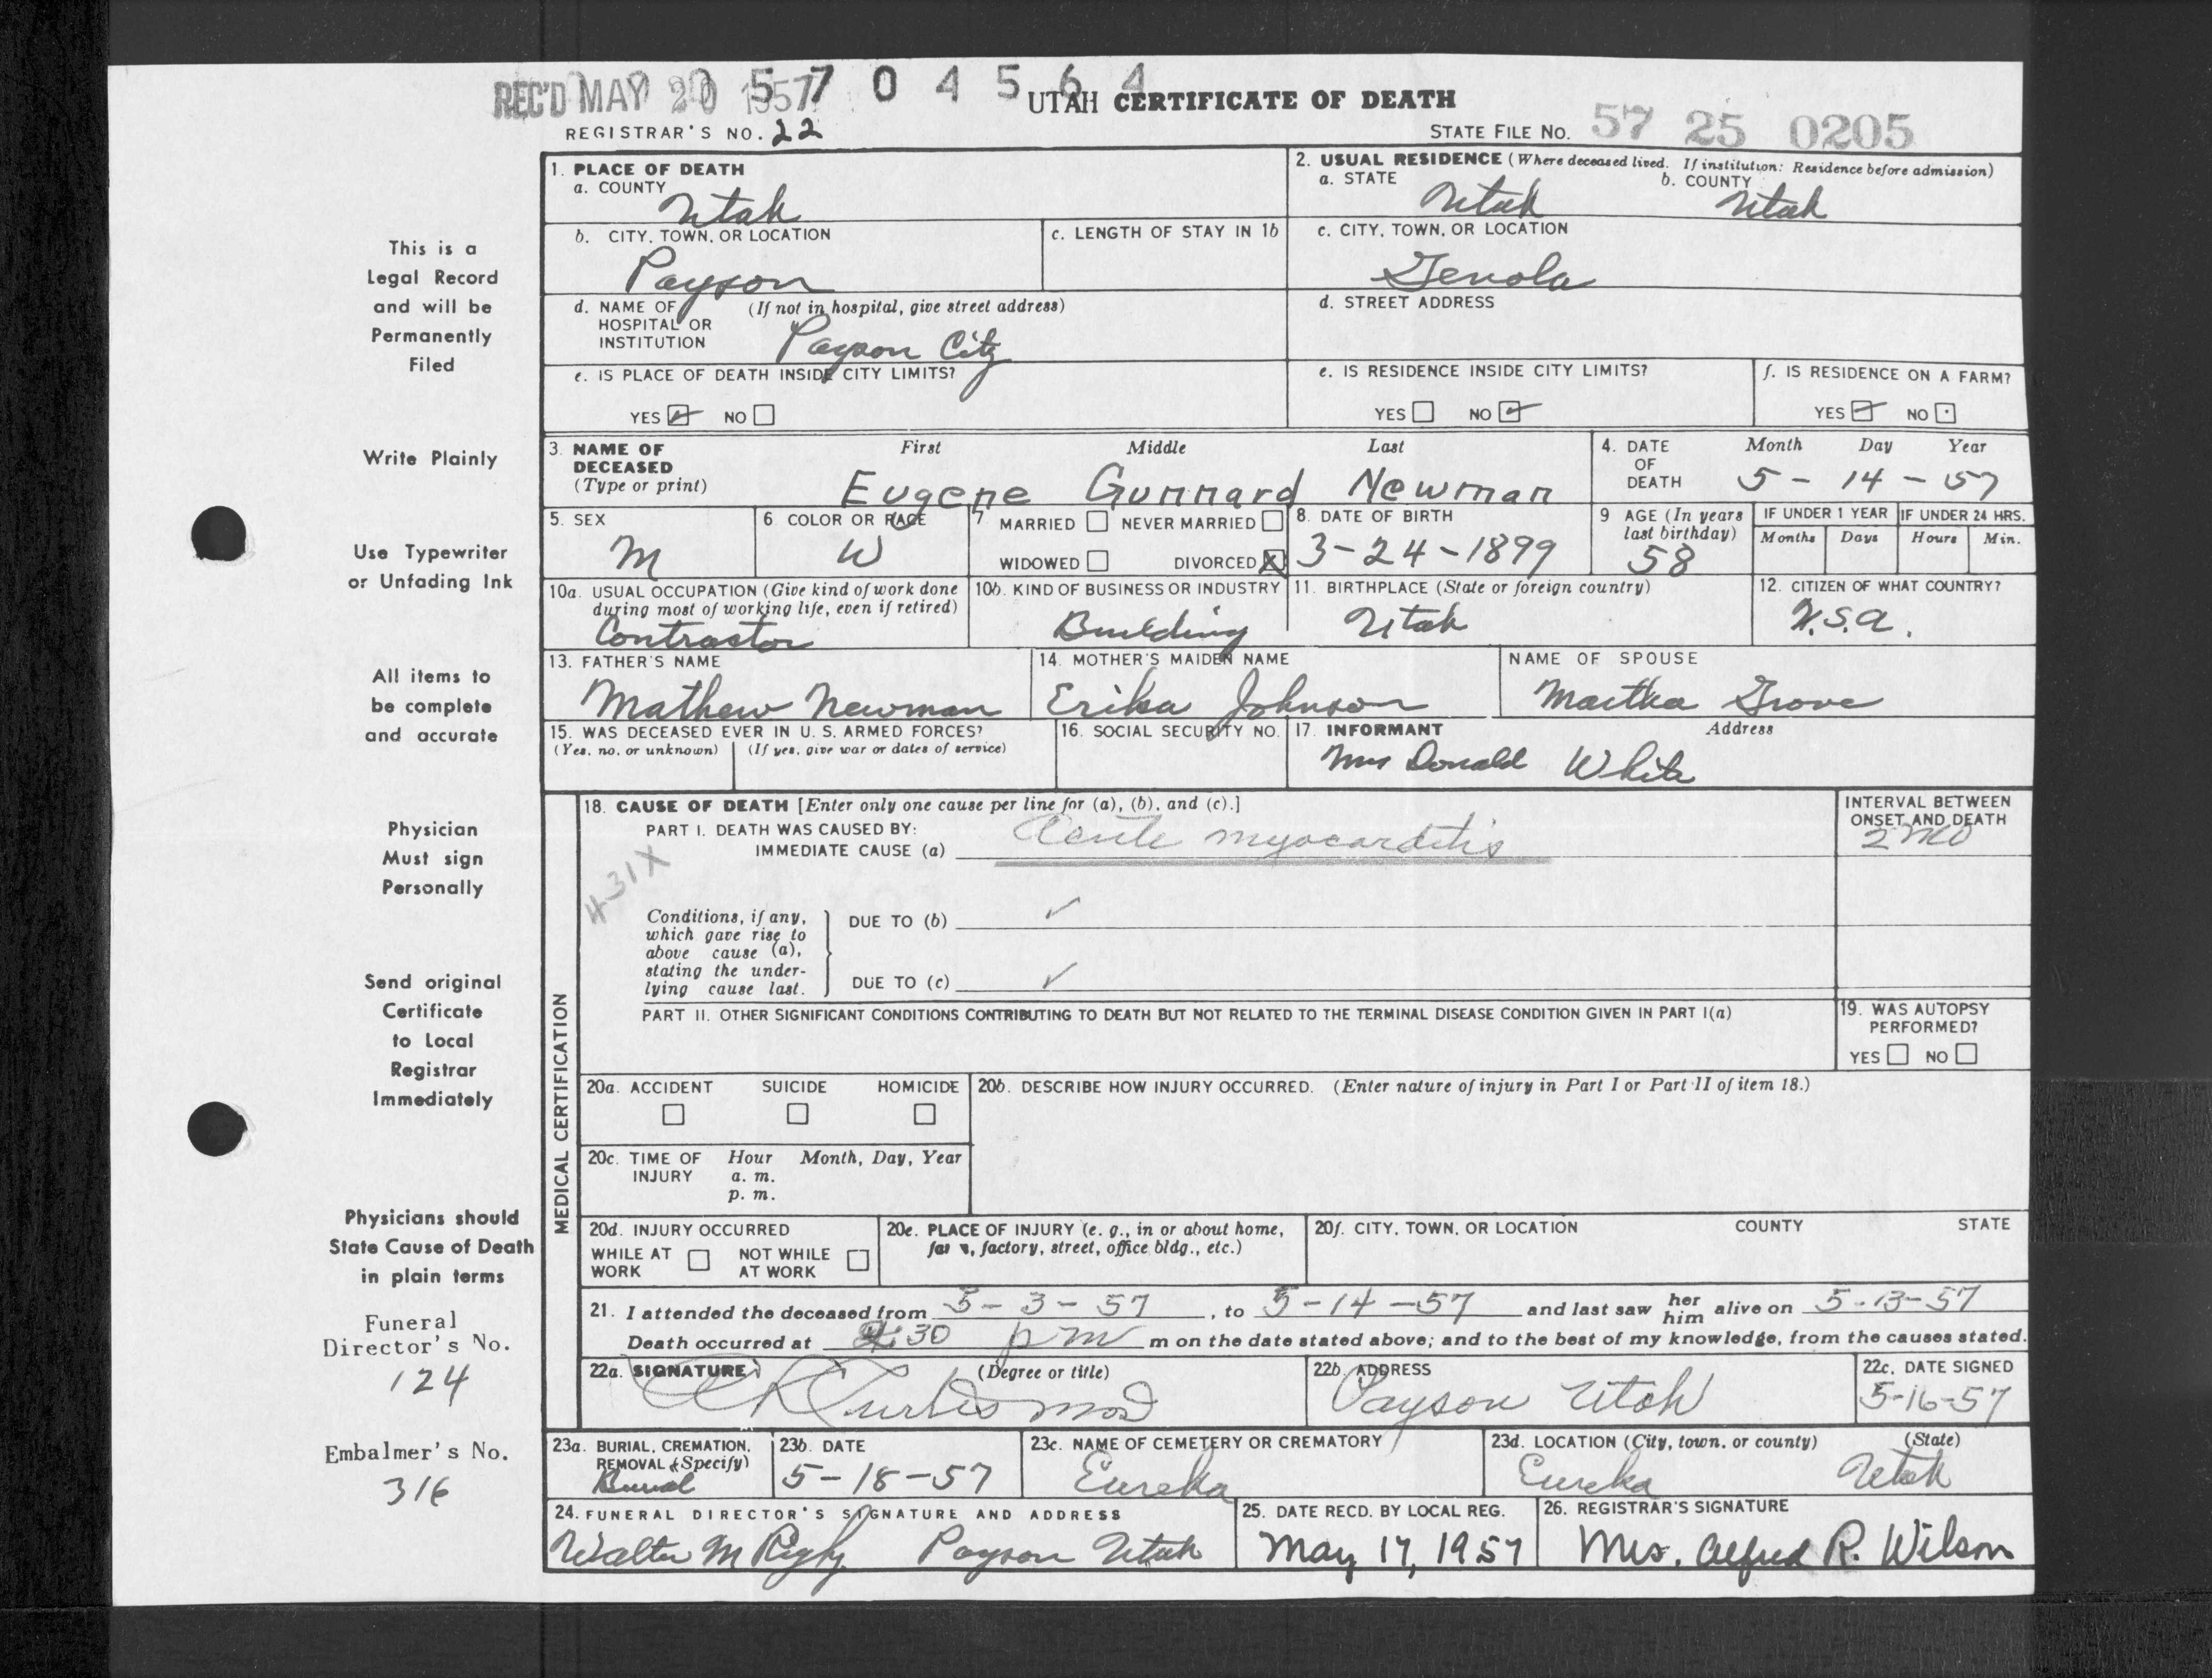 REC'D MAY 20 1957 5 7 0 4 5 6 4
UTAH CERTIFICATE OF DEATH
REGISTRAR'S NO. 22
STATE FILE NO. 57 25 0205
This is a
Legal Record
and will be
Permanently
Filed
Write Plainly
Use Typewriter
or Unfading Ink
All items to
be complete
and accurate
Physician
Must sign
Personally
Send original
Certificate
to Local
Registrar
Immediately
Physicians should
State Cause of Death
in plain terms
Funeral
Director's No.
124
Embalmer's No.
316
1. PLACE OF DEATH
a. COUNTY
Utah
2. USUAL RESIDENCE (Where deceased lived. If institution: Residence before admission)
a. STATE b. COUNTY
Utah Utah
b. CITY, TOWN, OR LOCATION
Payson
c. LENGTH OF STAY IN 1b
c. CITY, TOWN, OR LOCATION
Genola
d. NAME OF (If not in hospital, give street address)
HOSPITAL OR
INSTITUTION
Payson City
d. STREET ADDRESS
e. IS PLACE OF DEATH INSIDE CITY LIMITS?
YES ✓ NO
e. IS RESIDENCE INSIDE CITY LIMITS?
YES NO ✓
f. IS RESIDENCE ON A FARM?
YES ✓ NO
3. NAME OF First Middle Last
DECEASED
(Type or print)
Eugene Gunnard Newman
4. DATE Month Day Year
OF
DEATH
5 - 14 - 57
5. SEX
M
6 COLOR OR RACE
W
7 MARRIED NEVER MARRIED
WIDOWED DIVORCED X
8. DATE OF BIRTH
3-24-1899
9 AGE (In years
last birthday)
58
IF UNDER 1 YEAR IF UNDER 24 HRS.
Months Days Hours Min.
10a. USUAL OCCUPATION (Give kind of work done
during most of working life, even if retired)
Contractor
10b. KIND OF BUSINESS OR INDUSTRY
Building
11. BIRTHPLACE (State or foreign country)
Utah
12. CITIZEN OF WHAT COUNTRY?
U.S.A.
13. FATHER'S NAME
Mathew Newman
14. MOTHER'S MAIDEN NAME
Erika Johnson
NAME OF SPOUSE
Martha Grove
15. WAS DECEASED EVER IN U. S. ARMED FORCES?
(Yes, no, or unknown) (If yes, give war or dates of service)
16. SOCIAL SECURITY NO.
17. INFORMANT Address
Mrs Donald White
MEDICAL CERTIFICATION
18. CAUSE OF DEATH [Enter only one cause per line for (a), (b), and (c).]
PART I. DEATH WAS CAUSED BY:
IMMEDIATE CAUSE (a) Acute myocarditis
INTERVAL BETWEEN
ONSET AND DEATH
2 mo
431X
Conditions, if any,
which gave rise to
above cause (a),
stating the under-
lying cause last.
DUE TO (b) ✓
DUE TO (c) ✓
PART II. OTHER SIGNIFICANT CONDITIONS CONTRIBUTING TO DEATH BUT NOT RELATED TO THE TERMINAL DISEASE CONDITION GIVEN IN PART I(a)
19. WAS AUTOPSY
PERFORMED?
YES NO
20a. ACCIDENT SUICIDE HOMICIDE
20b. DESCRIBE HOW INJURY OCCURRED. (Enter nature of injury in Part I or Part II of item 18.)
20c. TIME OF Hour Month, Day, Year
INJURY a. m.
p. m.
20d. INJURY OCCURRED
WHILE AT NOT WHILE
WORK AT WORK
20e. PLACE OF INJURY (e. g., in or about home,
farm, factory, street, office bldg., etc.)
20f. CITY, TOWN, OR LOCATION COUNTY STATE
21. I attended the deceased from 5 - 3 - 57, to 5 - 14 - 57 and last saw her him alive on 5-13-57
Death occurred at 4:30 pm m on the date stated above; and to the best of my knowledge, from the causes stated.
22a. SIGNATURE (Degree or title)
Curtis MD
22b. ADDRESS
Payson Utah
22c. DATE SIGNED
5-16-57
23a. BURIAL, CREMATION,
REMOVAL (Specify)
Burial
23b. DATE
5-18-57
23c. NAME OF CEMETERY OR CREMATORY
Eureka
23d. LOCATION (City, town, or county) (State)
Eureka Utah
24. FUNERAL DIRECTOR'S SIGNATURE AND ADDRESS
Walter M Rigby Payson Utah
25. DATE RECD. BY LOCAL REG.
May 17, 1957
26. REGISTRAR'S SIGNATURE
Mrs. Alfred R. Wilson